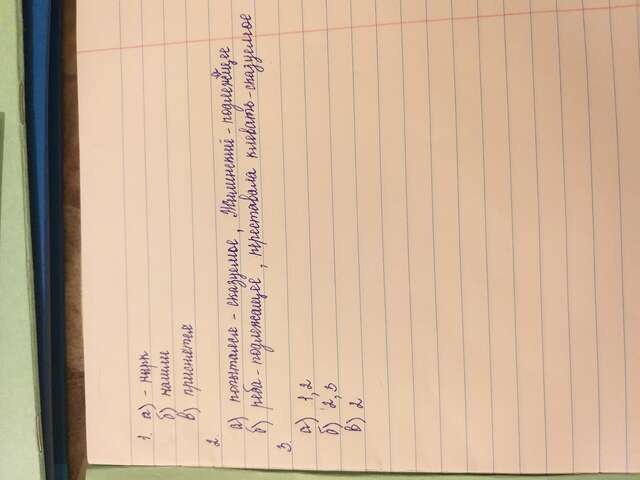 1. а) - нырк
б) нашли
в) приснятся
2.
а) попытался - сказуемое, Жилинский - подлежащее
б) рыба - подлежащее, переставала клевать - сказуемое
3.
а) 1,2
б) 2,3
в) 2